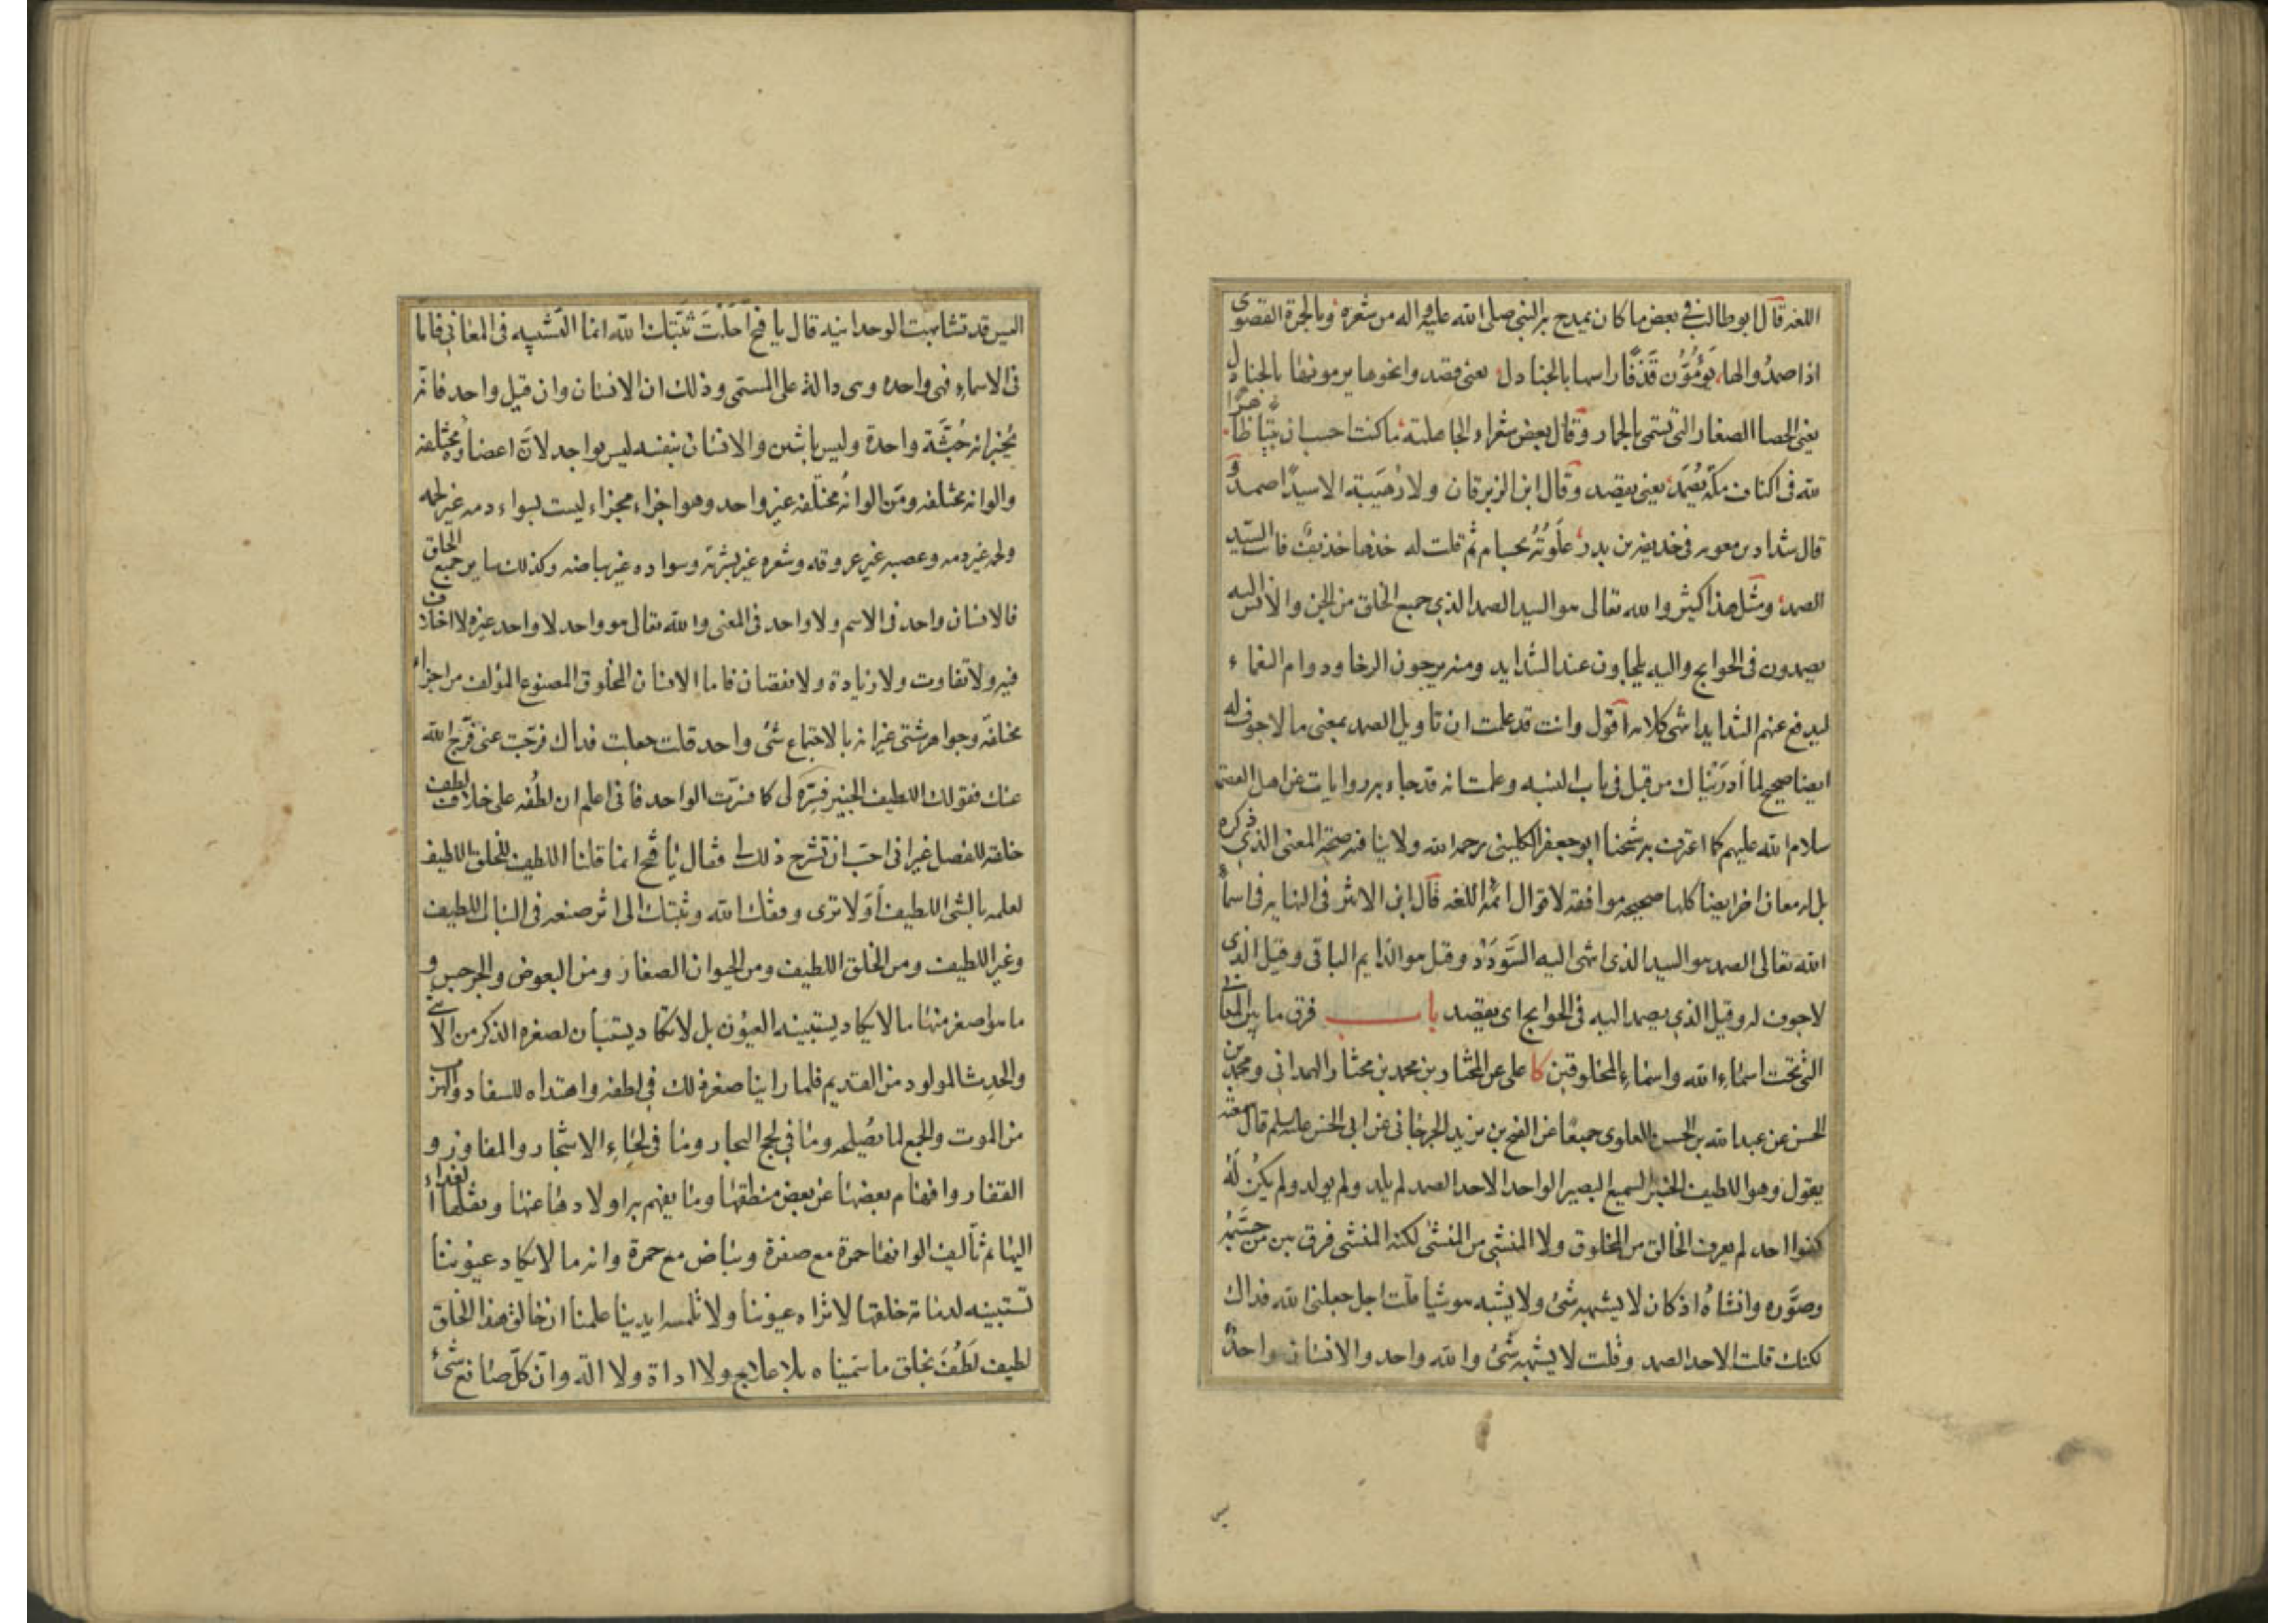 اللغه قال ابو طالب في بعض ما كان يمدح به النبي صلى الله عليه واله من شعره وبالجمرة القصوى
اذا صمدوا لها يؤمون قذفا راسها بالجنادل يعنى قصدوا نحوها يرمونها بالجنادل
يعنى الحصا الصغار التى تسمى بالجمار وقال بعض شعراء الجاهلية ما كنت احسب ان بيتا ظاهرا
لله فى اكناف مكة يصمد يعنى يقصد وقال ابن الزبرقان ولا رهيبة الا سيدا صمد و
قال شداد بن معويه فى حذيفه بن بدر علوته بحسام ثم قلت له خذها حذيف فانت السيد
الصمد ومثل هذا كثير والله تعالى هو السيد الصمد الذي جميع الخلق من الجن والانس اليه
يصمدون فى الحوايج واليه يلجاون عند الشدايد ومنه يرجون الرخا ودوام النعماء
ليدفع عنهم الشدايد انتهى كلامه اقول وانت قد علمت ان تاويل الصمد بمعنى ما لا جوف له
ايضا صحيح لما ادريناك من قبل فى باب النسبه وعلمت انه قد جاء به روايات عن اهل العصمة
سلام الله عليهم كما اعترف به شيخنا ابو جعفر الكلينى رحمه الله ولا ينافيه صحة المعنى الذي ذكره
بل له معان اخر ايضا كلها صحيحه موافقه لاقوال ائمة اللغه قال ابن الاثير فى النهايه فى اسماء
الله تعالى الصمد هو السيد الذى انتهى اليه السودد وقيل هو الدايم الباقى وقيل الذى
لا جوف له وقيل الذي يصمد اليه فى الحوايج اى يقصد باب فرق ما بين المعانى
التى تحت اسماء الله واسماء المخلوقين كا على عن المختار بن محمد بن مختار الهمدانى ومحمد بن
الحسن عن عبد الله بن الحسن العلوى جميعا عن الفتح بن يزيد الجرجانى عن ابى الحسن عليه السلم قال سمعته
يقول وهو اللطيف الخبير السميع البصير الواحد الاحد الصمد لم يلد ولم يولد ولم يكن له
كفوا احد لم يعرف الخالق من المخلوق ولا المنشى من المنشى لكنه المنشى فرق بين من جسمه
وصوره وانشاه اذ كان لا يشبهه شئ ولا يشبه هو شيا قلت اجل جعلنى الله فداك
لكنك قلت الاحد الصمد وقلت لا يشبهه شئ والله واحد والانسان واحد
ليس
اليس قد تشابهت الوحدانيه قال يا فتح احلت ثبتك الله انما التشبيه فى المعانى فاما
فى الاسماء فهى واحده وهى دالة على المسمى وذلك ان الانسان وان قيل واحد فانه
يخبر انه جثة واحدة وليس باثنين والانسان بنفسه ليس بواحد لان اعضاؤه مختلفه
والوانه مختلفه ومن الوانه مختلفه غير واحد وهو اجزاء مجزاء ليست بسواء دمه غير لحمه
ولحمه غير دمه وعصبه غير عروقه وشعره غير بشرته وسواده غير بياضه وكذلك ساير جميع الخلق
فالانسان واحد فى الاسم ولا واحد فى المعنى والله تعالى هو واحد لا واحد غيره لا اختلاف
فيه ولا تفاوت ولا زيادة ولا نقصان فاما الانسان المخلوق المصنوع المؤلف من اجزاء
مختلفه وجواهر شتى غير انه بالاجتماع شئ واحد قلت جعلت فداك فرجت عنى فرج الله
عنك فقولك اللطيف الخبير فسره لى كما فسرت الواحد فانى اعلم ان لطفه على خلاف لطف
خلقه للفصل غير انى احب ان تشرح ذلك لى فقال يا فتح انما قلنا اللطيف للخلق اللطيف
لعلمه بالشئ اللطيف أولا ترى وفقك الله وثبتك الى اثر صنعه فى النبات اللطيف
وغير اللطيف ومن الخلق اللطيف ومن الحيوان الصغار ومن البعوض والجرجس و
ما هو اصغر منها ما لا يكاد يستبينه العيون بل لا تكاد يستبان لصغره الذكر من الانثى
والحدث المولود من القديم فلما راينا صغر ذلك فى لطفه واهتداه للسفاد والهرب
من الموت والجمع لما يصلحه وما في لجج البحار وما فى لحاء الاشجار والمفاوز و
القفار وافهام بعضها عن بعض منطقها وما يفهم به اولادها عنها ونقلها الغداء
اليها ثم تأليف الوانها حمرة مع صفرة وبياض مع حمرة وانه ما لا تكاد عيوننا
تستبينه لدمامة خلقها لا تراه عيوننا ولا تلمسه ايدينا علمنا ان خالق هذا الخلق
لطيف لطف بخلق ما سميناه بلا علاج ولا اداة ولا آلة وان كل صانع شئ